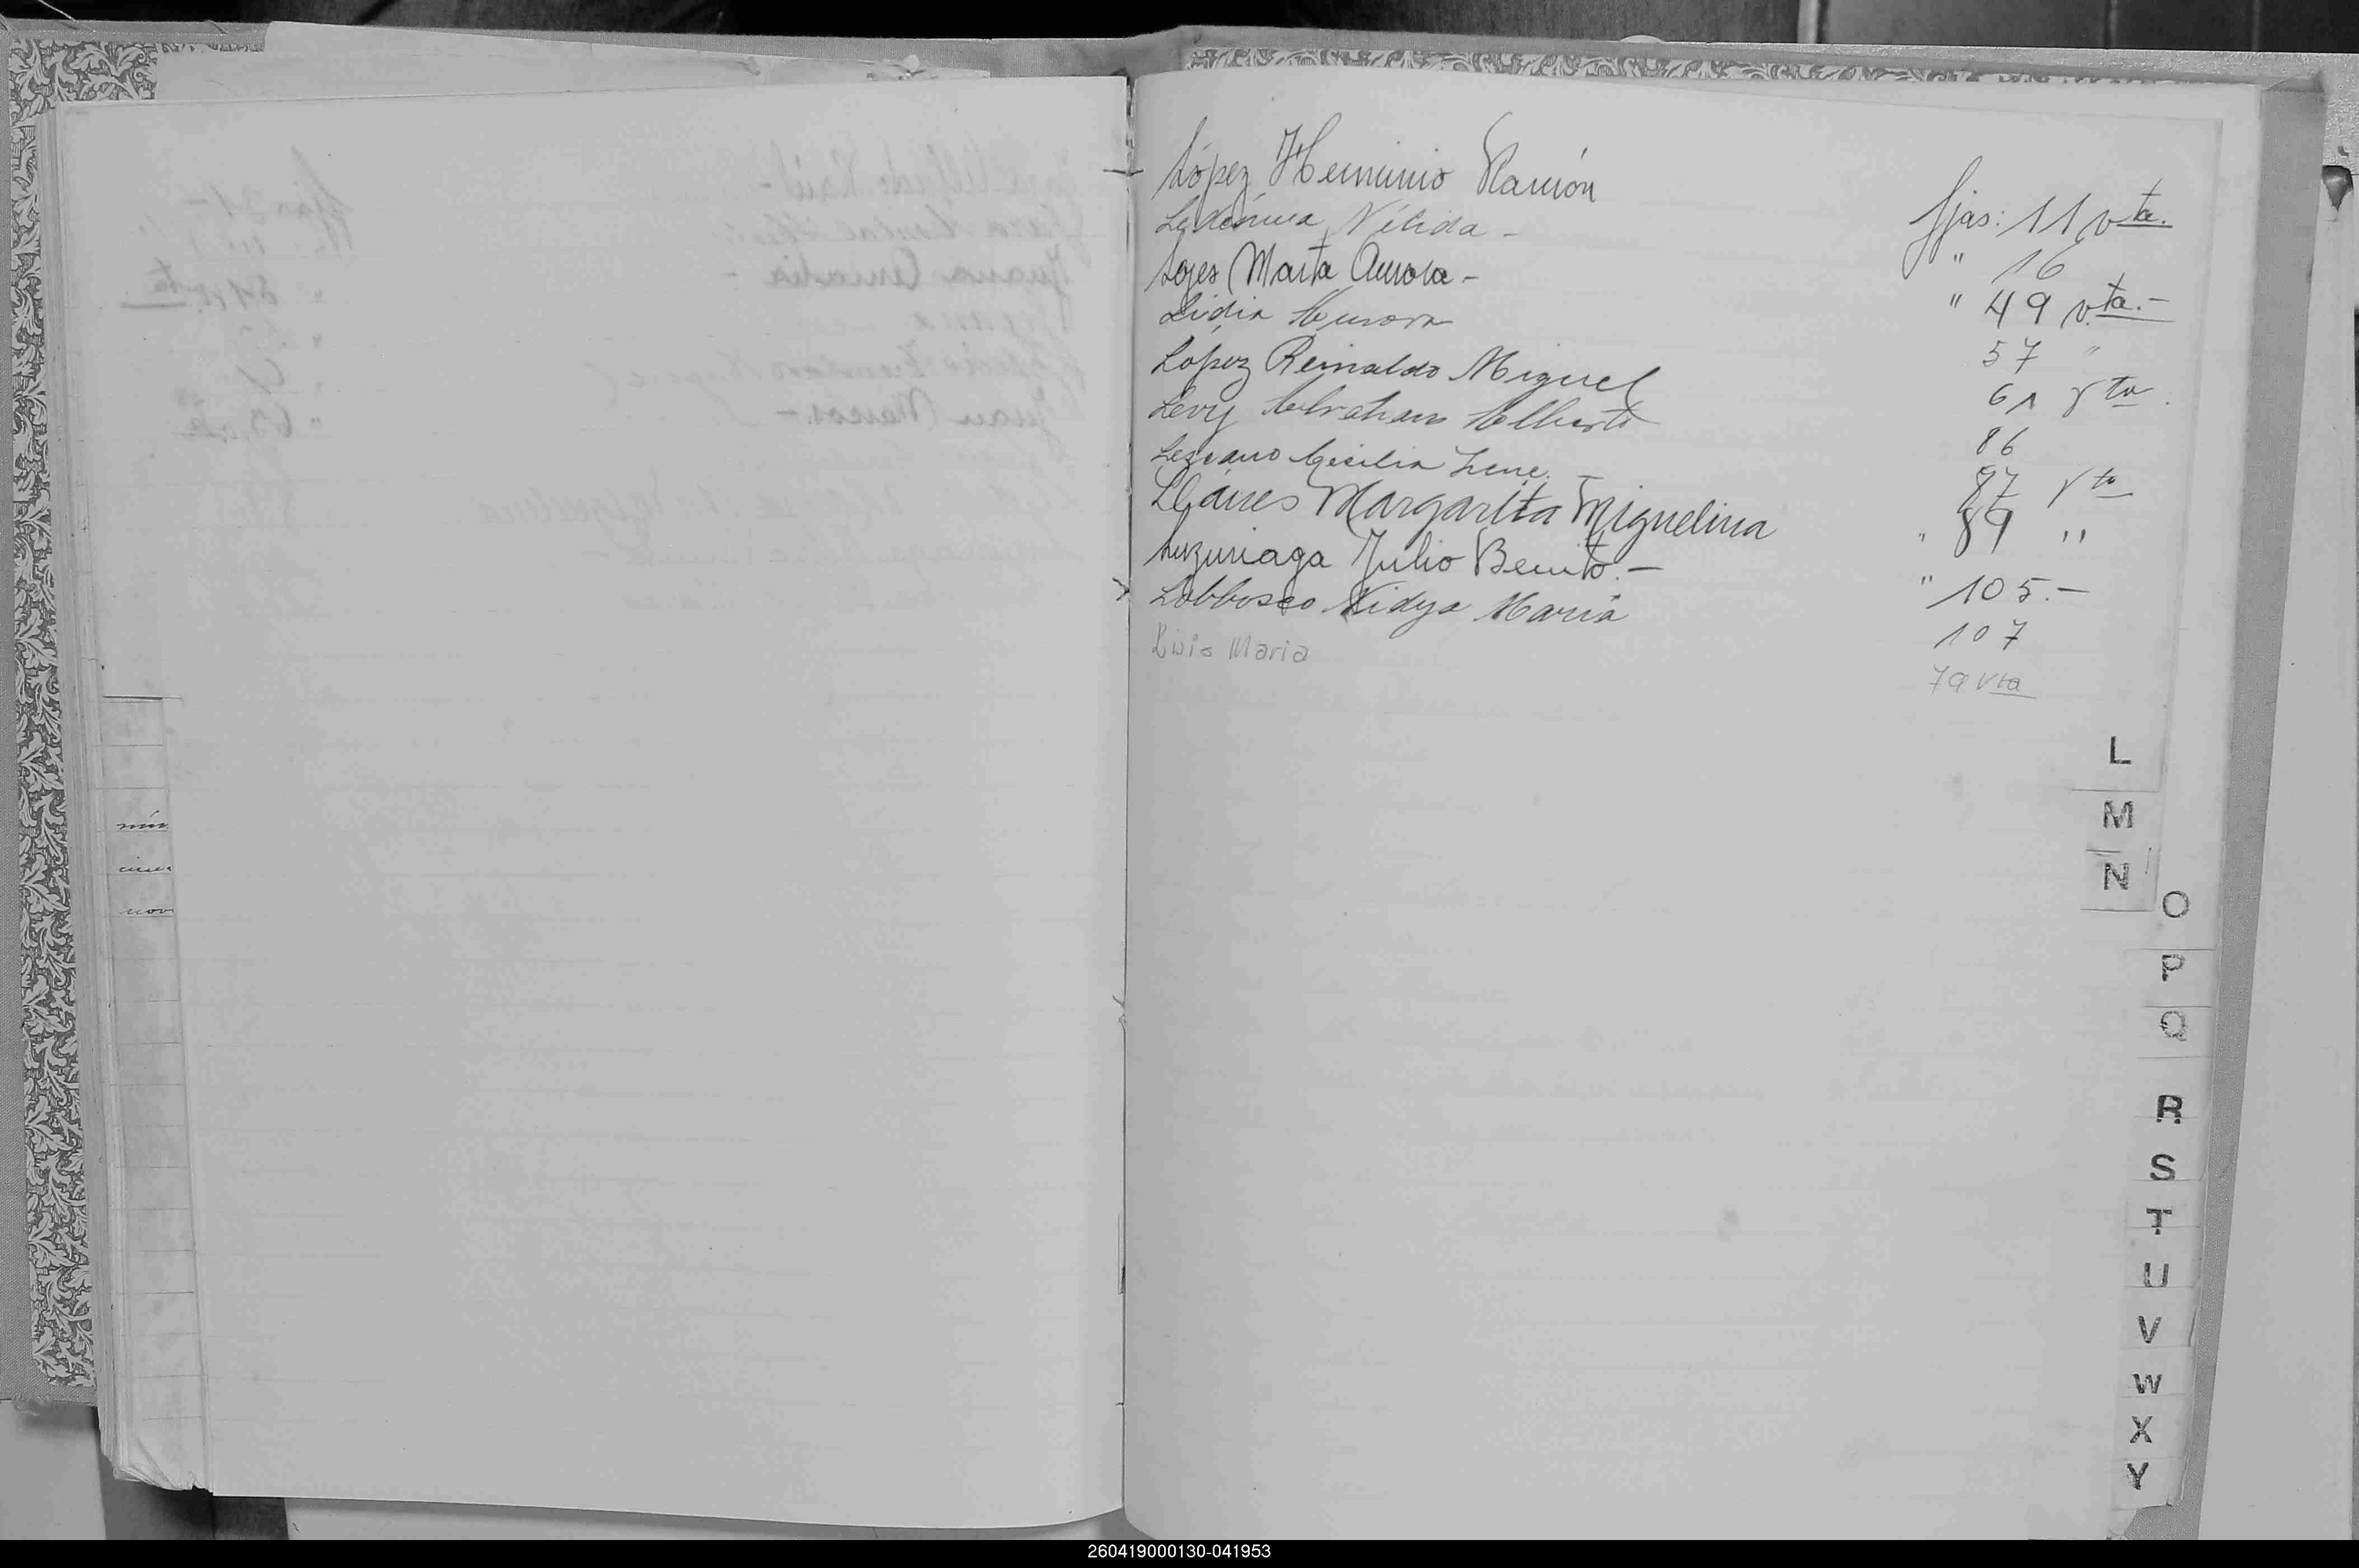 López Herminio Ramón fjas: 11 vta.
Ledesma Nélida - " 16
Lojes Marta Aurora - " 49 vta.-
Lidia Aurora 57 "
Lopez Reinaldo Miguel 61 vta.
Levy Abraham Alberto 86
Lezcano Cecilia Irene. 87 vta
Llánes Margarita Miguelina " 89 "
Luzuriaga Julio Benito.- " 105.-
Lobbosco Nidya María 107
Maria 79 vta
L
M
N
O
P
Q
R
S
T
U
V
W
X
Y
260419000130-041953